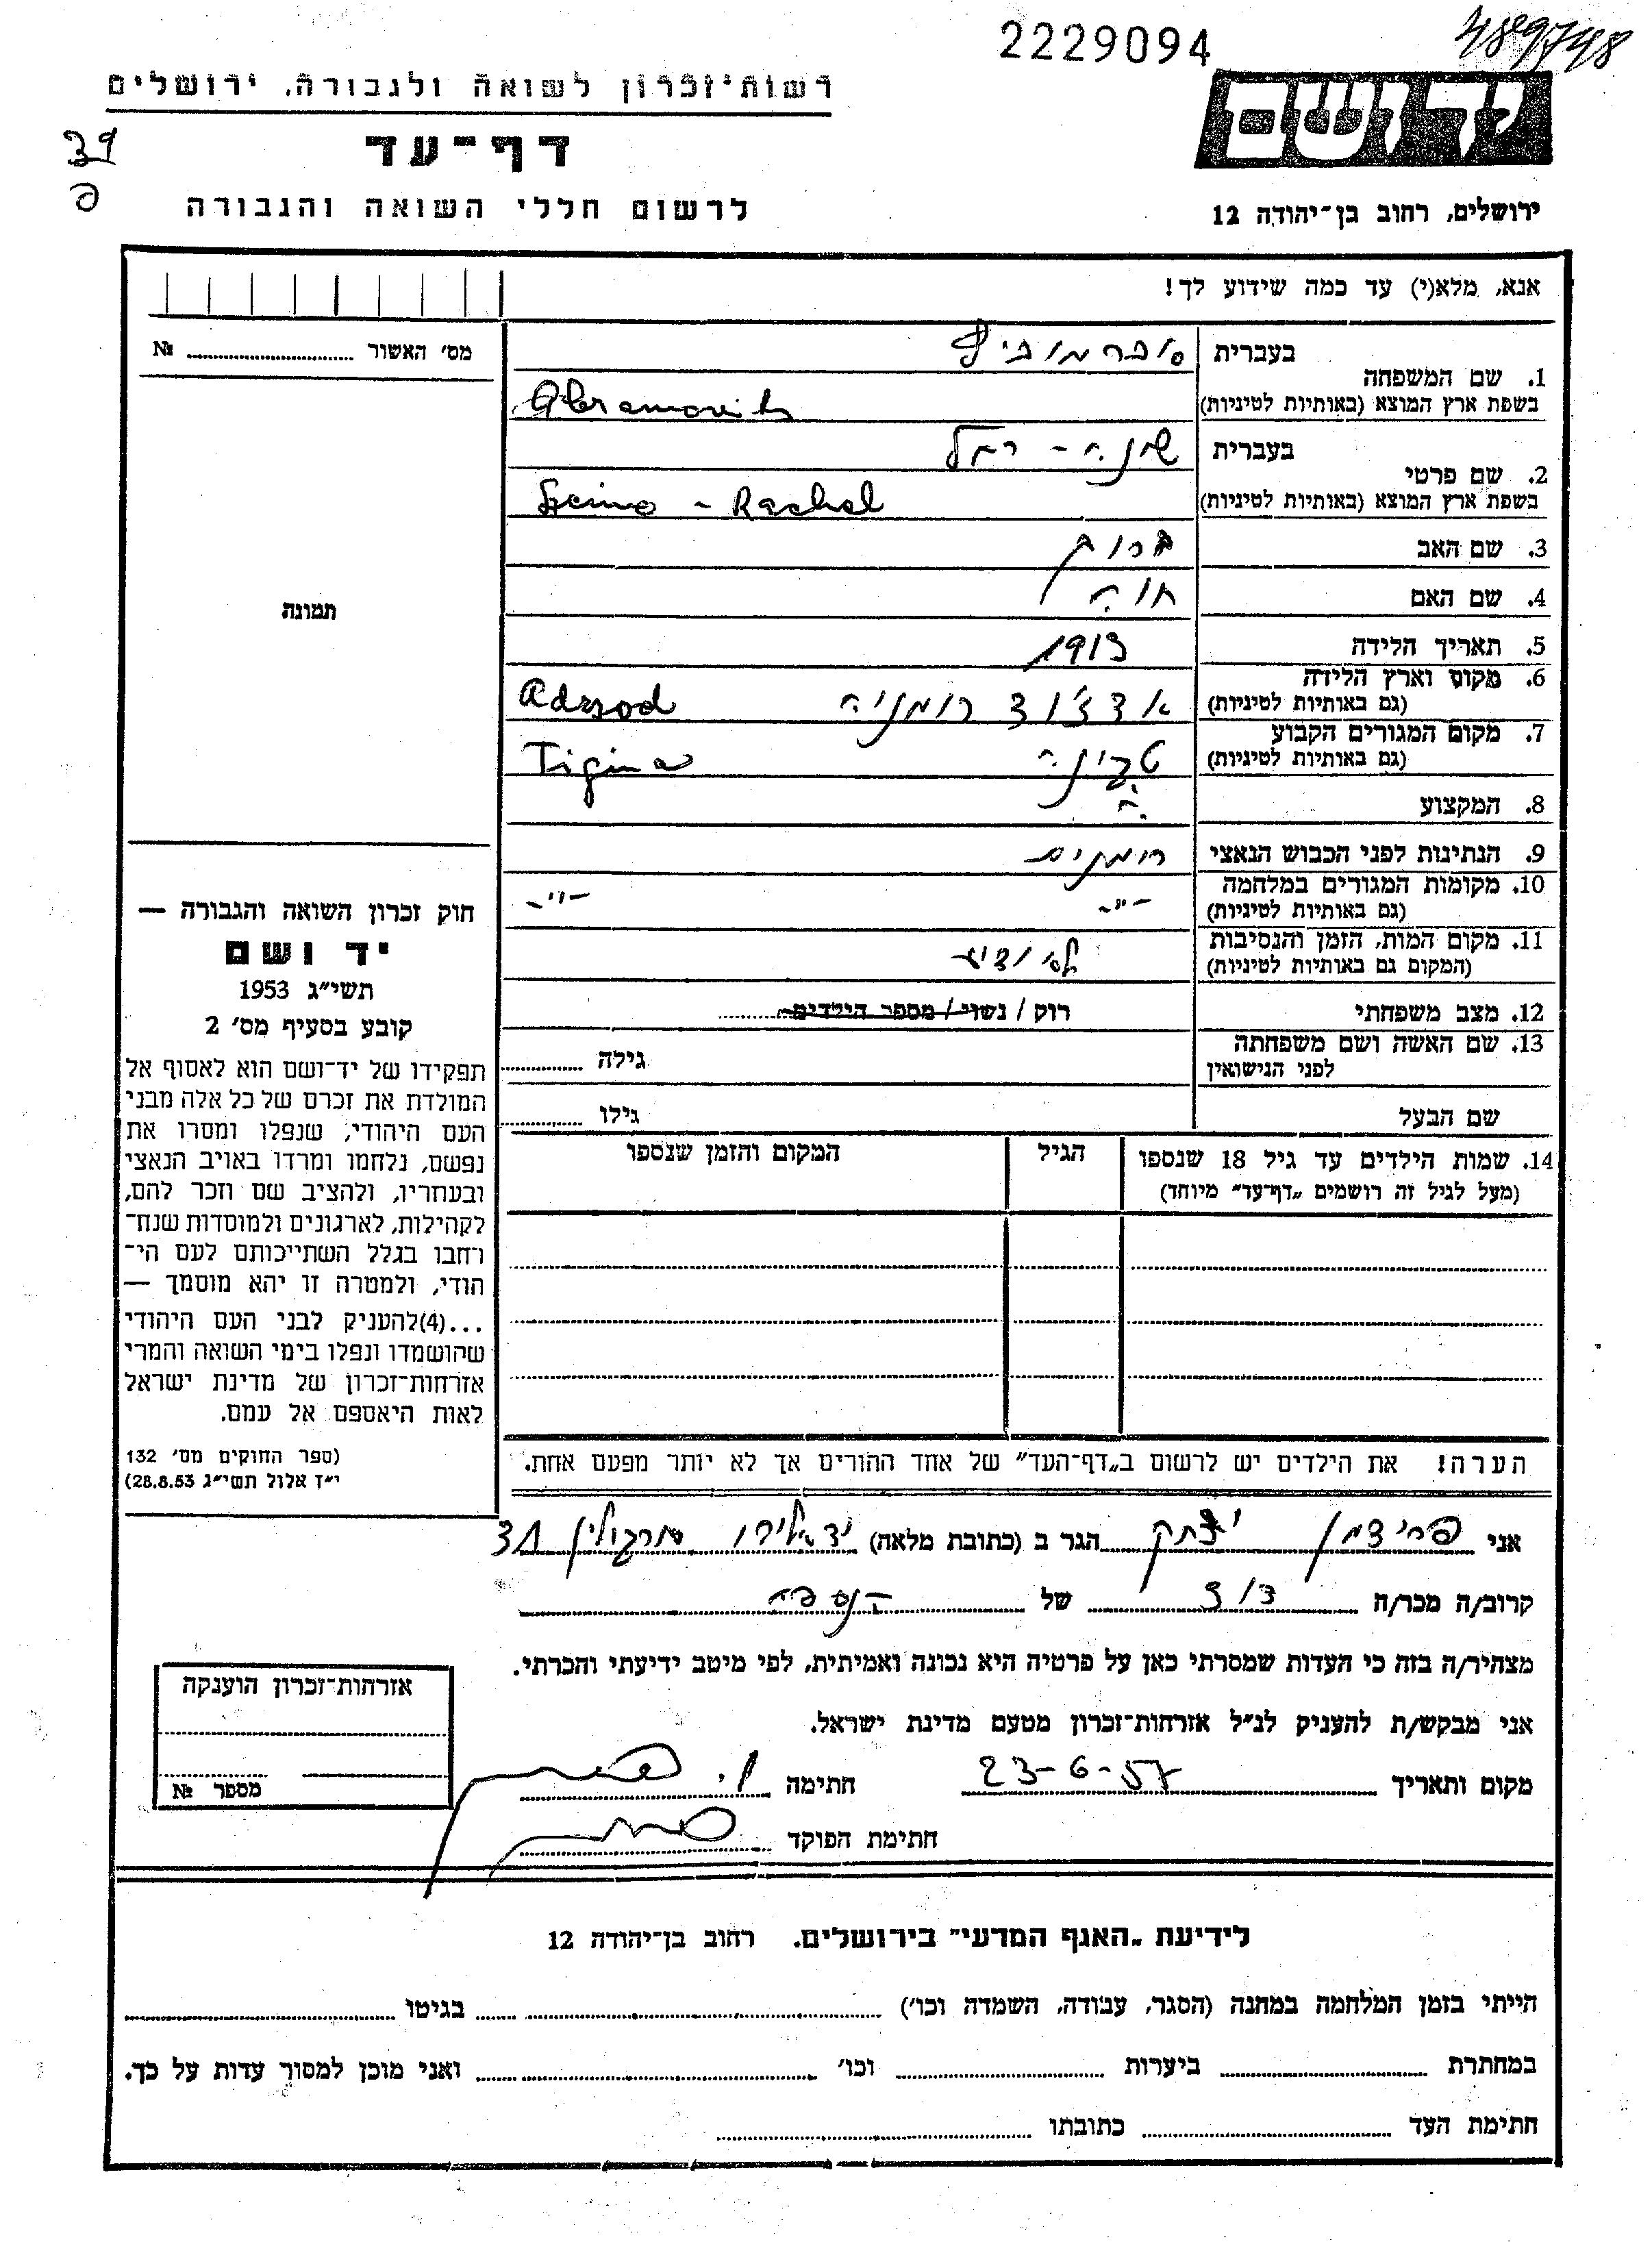 2229094
489748
רשות־זכרון לשואה ולגבורה, ירושלים
דף־עד
לרשום חללי השואה והגבורה
ידושם
ירושלים, רחוב בן־יהודה 12
39
אנא, מלא(י) עד כמה שידוע לך!
מס׳ האשור № 
תמונה
1. שם המשפחה
בעברית אברמוביץ
בשפת ארץ המוצא (באותיות לטיניות) Abramovith
2. שם פרטי
בעברית שינה - רחל
בשפת ארץ המוצא (באותיות לטיניות) Rachel
3. שם האב ברוך
4. שם האם חוה
5. תאריך הלידה 1913
6. מקום וארץ הלידה
(גם באותיות לטיניות) רומניה Adzsod
7. מקום המגורים הקבוע
(גם באותיות לטיניות) טגינה Tigina
8. המקצוע
9. הנתינות לפני הכבוש הנאצי
10. מקומות המגורים במלחמה
(גם באותיות לטיניות) -"- -"-
11. מקום המות, הזמן והנסיבות
(המקום גם באותיות לטיניות) לא ידוע
12. מצב משפחתי רוק / נשוי / מספר הילדים
13. שם האשה ושם משפחתה
לפני הנישואין גילה
שם הבעל גילו
14. שמות הילדים עד גיל 18 שנספו הגיל המקום והזמן שנספו
(מעל לגיל זה רושמים „דף־עד״ מיוחד)
חוק זכרון השואה והגבורה —
יד ושם
תשי״ג 1953
קובע בסעיף מס׳ 2
תפקידו של יד־ושם הוא לאסוף אל
המולדת את זכרם של כל אלה מבני
העם היהודי, שנפלו ומסרו את
נפשם, נלחמו ומרדו באויב הנאצי
ובעוזריו, ולהציב שם וזכר להם,
לקהילות, לארגונים ולמוסדות שנח־
רחבו בגלל השתייכותם לעם הי־
הודי, ולמטרה זו יהא מוסמך —
...(4)להעניק לבני העם היהודי
שהושמדו ונפלו בימי השואה והמרי
אזרחות־זכרון של מדינת ישראל
לאות היאספם אל עמם.
(ספר החוקים מס׳ 132
י״ז אלול תשי״ג 28.8.53)
הערה! את הילדים יש לרשום ב„דף־העד״ של אחד ההורים אך לא יותר מפעם אחת.
אני פרידמן יצחק הגר ב (כתובת מלאה) יד אליהו מרגולין 31
קרוב/ה מכר/ה דוד של הנספה
מצהיר/ה בזה כי העדות שמסרתי כאן על פרטיה היא נכונה ואמיתית, לפי מיטב ידיעתי והכרתי.
אני מבקש/ת להעניק לנ״ל אזרחות־זכרון מטעם מדינת ישראל.
מקום ותאריך 23-6-57 חתימה
חתימת הפוקד
אזרחות־זכרון הוענקה
מספר №
לידיעת „האגף המדעי״ בירושלים. רחוב בן־יהודה 12
הייתי בזמן המלחמה במחנה (הסגר, עבודה, השמדה וכו׳) בגיטו
במחתרת ביערות וכו׳ ואני מוכן למסור עדות על כך.
חתימת העד כתובתו